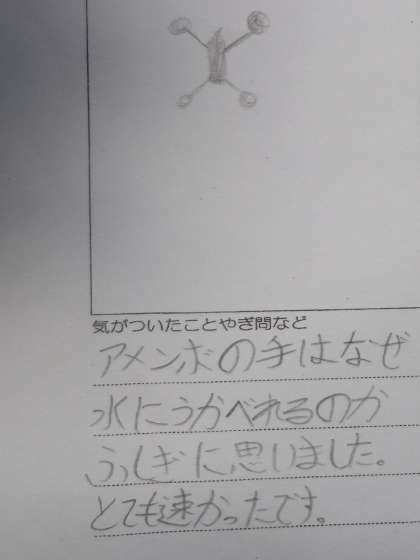 気がついたことやぎ問など
アメンボの手はなぜ
水にうかべれるのか
ふしぎに思いました。
とても速かったです。